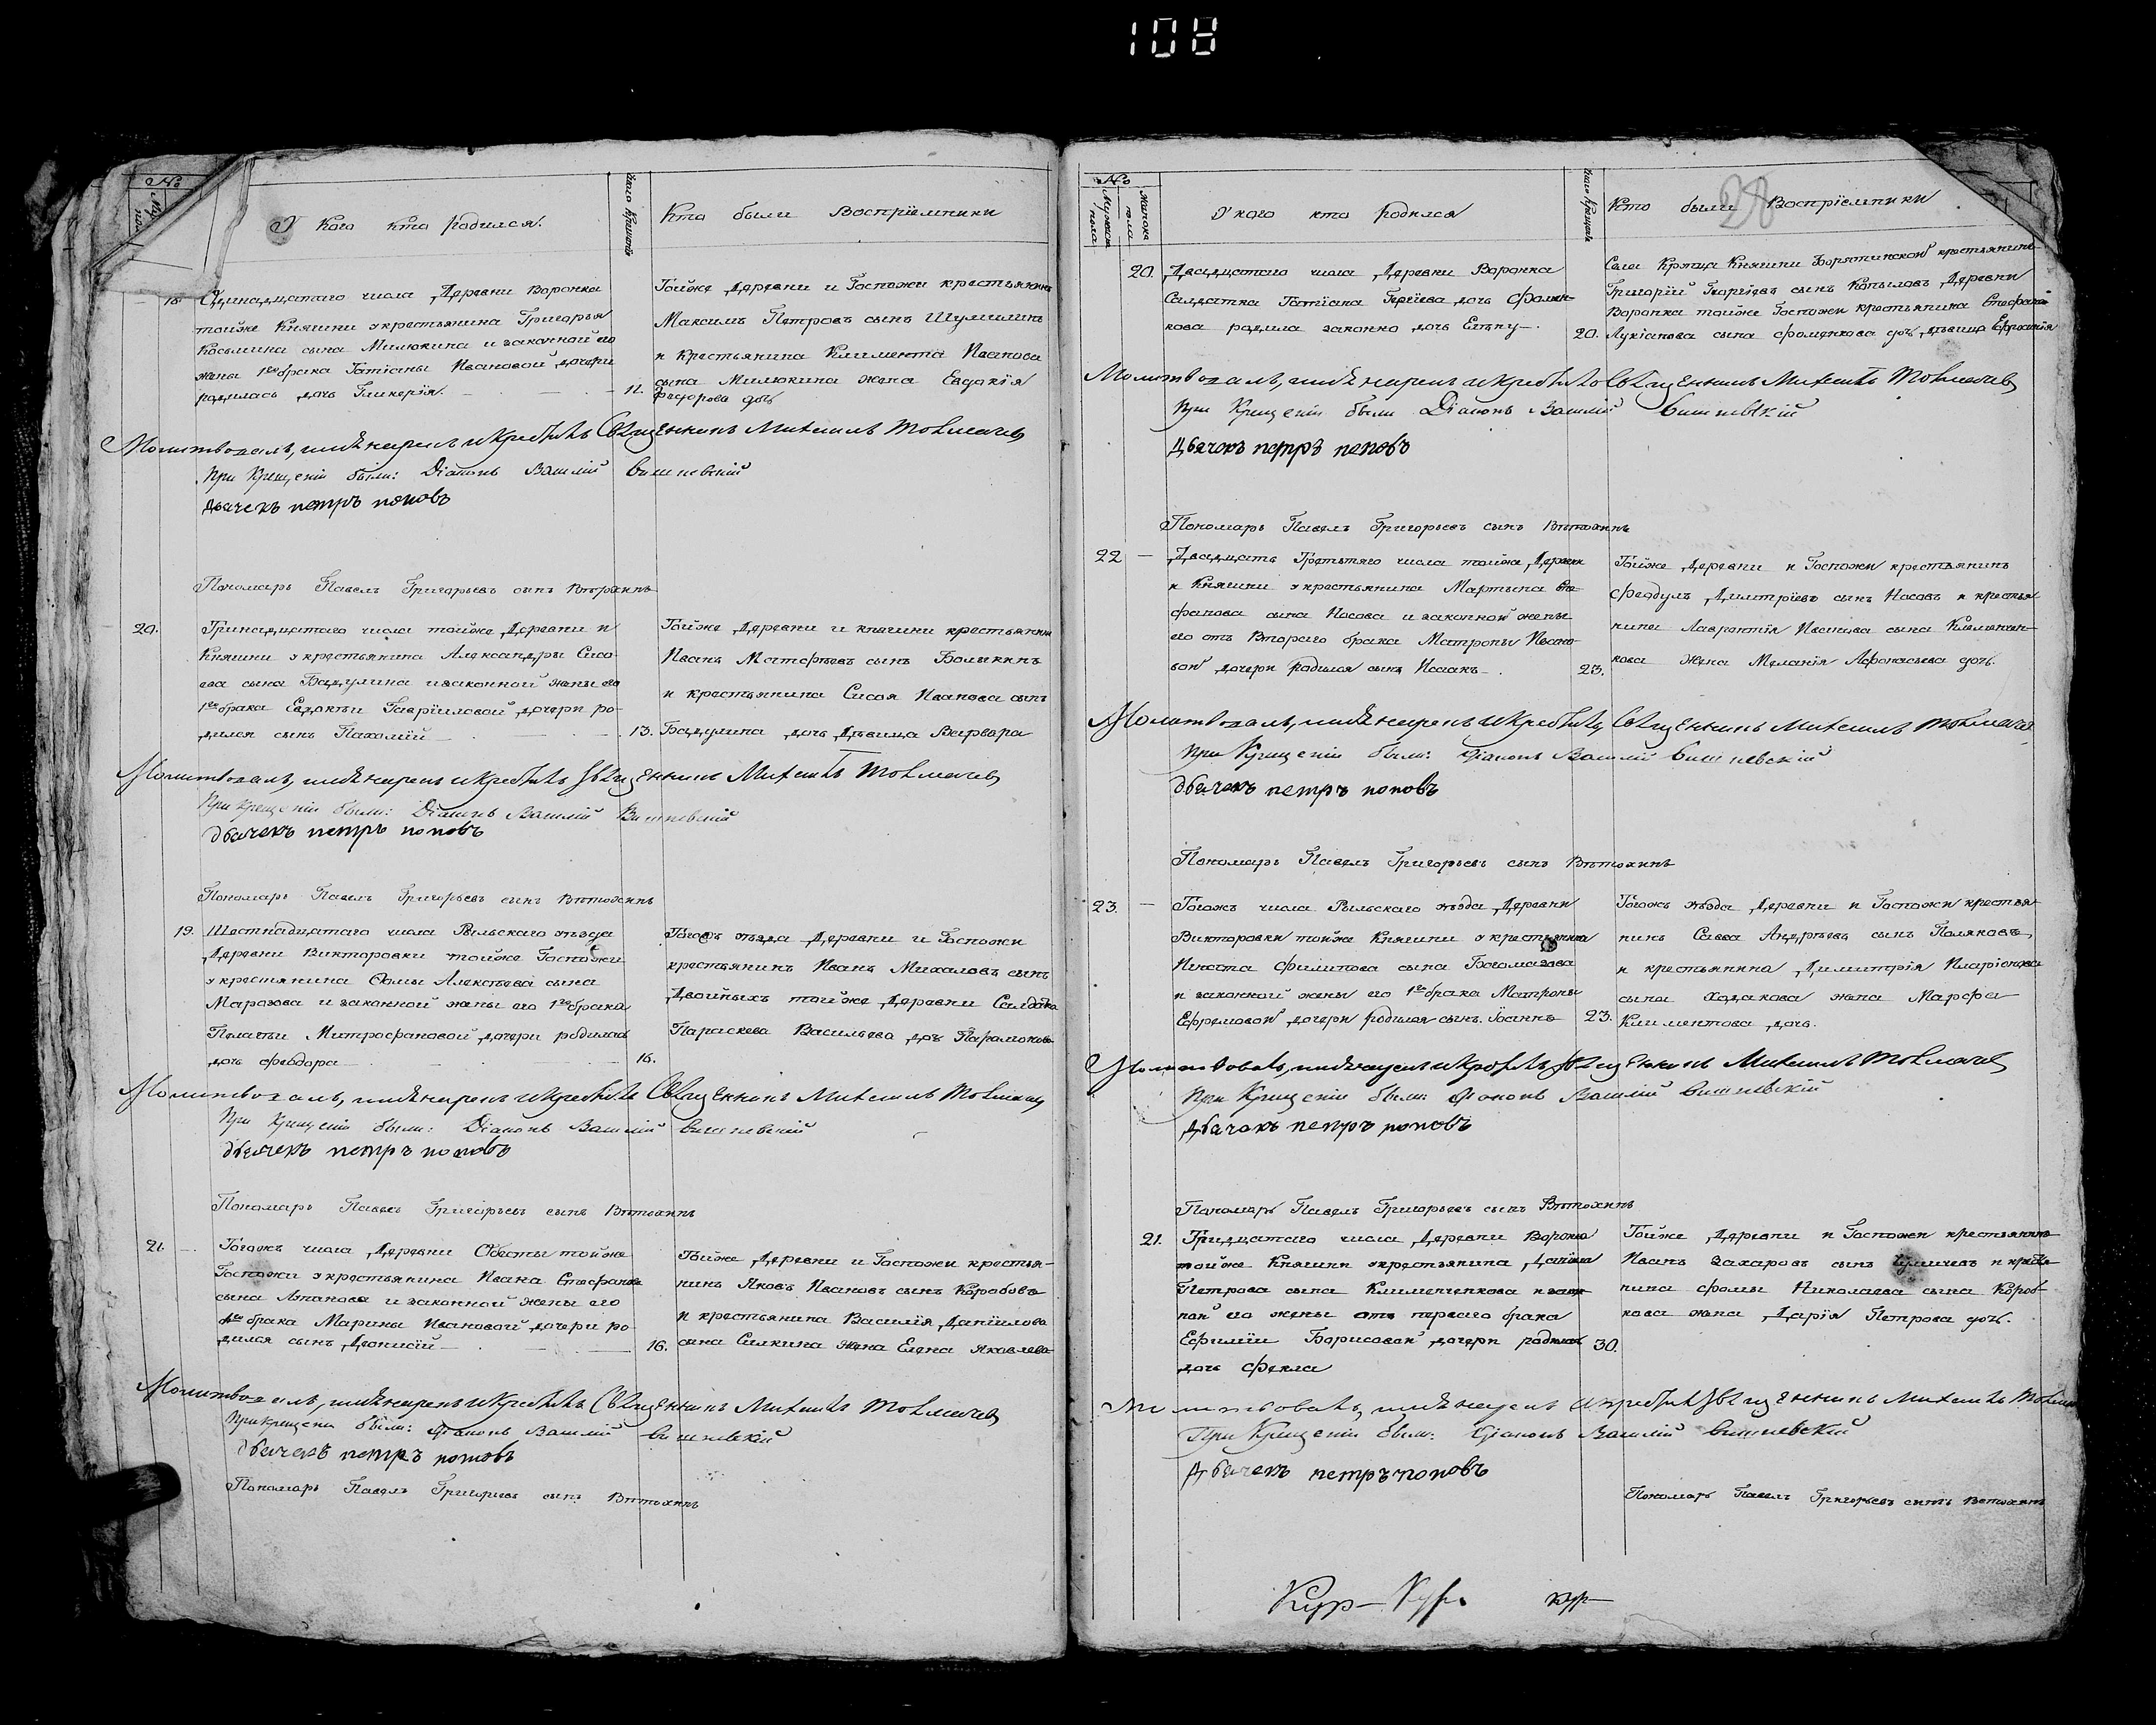 108
№
У кого кто родился.
Кто были Воспріемники
18. Одинадцатаго числа Деревни Воронка
тойже Княгини укрестьянина Григорья
Косьмина сына Милюкина и законной его
жены 1го брака Татіаны Ивановой дочери
родилась дочь Гликерія. 12.
Тойже Деревни и Госпожи крестьянинъ
Максимъ Петровъ сынъ Шумилинъ
и крестьянина Климента Иванова
сына Милюкина жена Евдокія
Федорова дочь
Молитвовалъ, имя нарекъ и крестилъ Священникъ Михаилъ Толмачевъ
При Крещеніи были: Діаконъ Василій Вишневскій
Дьячекъ петръ поповъ
Пономарь Павелъ Григорьевъ сынъ Ветохинъ
20. Тринадцатаго числа тойже Деревни и
Княгини укрестьянина Александры Сисо-
ева сына Бадулина изаконной жены его
1го брака Евдокіи Гавриловой дочери ро-
дился сынъ Пахомій 13.
Тойже Деревни и княгини крестьянинъ
Иванъ Матфѣевъ сынъ Болыкинъ
и крестьянина Сисоя Иванова сына
Бадулина дочь Дѣвица Варвара
Молитвовалъ, имя нарекъ и крестилъ Священникъ Михаилъ Толмачевъ
При крещеніи были: Діаконъ Василій Вишневскій
дьячекъ петръ поповъ
Пономарь Павелъ Григорьевъ сынъ Ветохинъ
19. Шестнадцатаго числа Рыльскаго уѣзда
Деревни Викторовки тойже Госпожи
укрестянина Фомы Алексѣева сына
Марозова и законной жены его 1го брака
Пелагѣи Митрофановой дочери родилась
дочь Феодора 16.
Тогожъ уѣзда Деревни и Госпожи
крестьянинъ Иванъ Михаловъ сынъ
Двойныхъ тойже Деревни Салдатка
Параскева Васильева дочь Парамонова
Молитвовалъ, имя нарекъ и крестилъ Священникъ Михаилъ Толмачевъ
При Крещеніи были: Діаконъ Василій Вишневскій
дьячекъ петръ поповъ
Пономарь Павелъ Григорьевъ сынъ Ветохинъ
21. Тогожъ числа Деревни Обесты тойже
Госпожи укрестьянина Ивана Стефанова
сына Лапанова и законной жены его
1го брака Марины Ивановой дочери ро-
дился сынъ Діонисій 16.
Тойже Деревни и Госпожи крестья-
нинъ Яковъ Ивановъ сынъ Коробовъ
и крестьянина Василія Даніилова
сына Силкина жена Елена Яковлева
Молитвовалъ, имя нарекъ и крестилъ Священникъ Михаилъ Толмачевъ
При крещеніи были: Діаконъ Василій Вишневскій
дьячекъ петръ поповъ
Пономарь Павелъ Григорьевъ сынъ Ветохинъ
28
№
Мужеска пола
Женска пола
У кого кто родился
Кто были Воспріемники
20. Двадцатаго числа Деревни Воронка
Салдатка Татіана Сергіева дочь Фомен-
кова родила законно дочь Елену 20.
Села Крупца Княгини Борятинской крестьянинъ
Григорій Георгіевъ сынъ Копыловъ Деревни
Воронка тойже Госпожи крестьянина Стефана
Лукіанова сына Фоменкова дочь дѣвица Ефросинія
Молитвовалъ, имя нарекъ и крестилъ Священникъ Михаилъ Толмачевъ
При Крещеніи были Діаконъ Василій Вишневскій
Дьячекъ петръ поповъ
Пономарь Павелъ Григорьевъ сынъ Ветохинъ
22 Двадцать Третьяго числа тойже Деревни
и Княгини укрестьянина Мартына Сте-
фанова сына Носова и законной жены
его отъ Втораго брака Матроны Ивано-
вой дочери родился сынъ Исаакъ 23.
Тойже Деревни и Госпожи крестьянинъ
Феодулъ Димитріевъ сынъ Носовъ и крестья-
нина Лаврентія Иванова сына Клименчен-
кова жена Меланія Афонасьева дочь.
Молитвовалъ, имя нарекъ и крестилъ Священникъ Михаилъ Толмачевъ
При Крещеніи были: Діаконъ Василій Вишневскій
дьячекъ петръ поповъ
Пономарь Павелъ Григорьевъ сынъ Ветохинъ
23. Тогожъ числа Рыльскаго уѣзда Деревни
Викторовки тойже Княгини укрестьянина
Никита Филипова сына Богомазова
и законной жены его 1го брака Матроны
Ефремовой дочери родился сынъ Іоаннъ 23.
Тогожъ уѣзда Деревни и Госпожи крестья-
нинъ Савва Андрѣевъ сынъ Поляковъ
и крестьянина Димитрія Иларіонова
сына Ходакова жена Марфа
Климентова дочь.
Молитвовалъ, имя нарекъ и крестилъ Священникъ Михаилъ Толмачевъ
При Крещеніи были Діаконъ Василій Вишневскій
Дьячекъ петръ поповъ
Пономарь Павелъ Григорьевъ сынъ Ветохинъ
21. Тридцатаго числа Деревни Воронка
тойже Княгини укрестьянина Даніила
Петрова сына Клименченкова и закон-
ной его жены отъ перваго брака
Ефиміи Борисовой дочери родилась 30.
дочь Фекла
Тойже Деревни и Госпожи крестьянинъ
Иванъ Захаровъ сынъ и крестья-
нина Фомы Николаева сына Короб-
кова жена Дарія Петрова дочь.
Молитвовалъ, имя нарекъ и крестилъ Священникъ Михаилъ Толмачевъ
При Крещеніи были: Діаконъ Василій Вишневскій
Дьячекъ петръ поповъ
Пономарь Павелъ Григорьевъ сынъ Ветохинъ
Кур- Кур. кур-